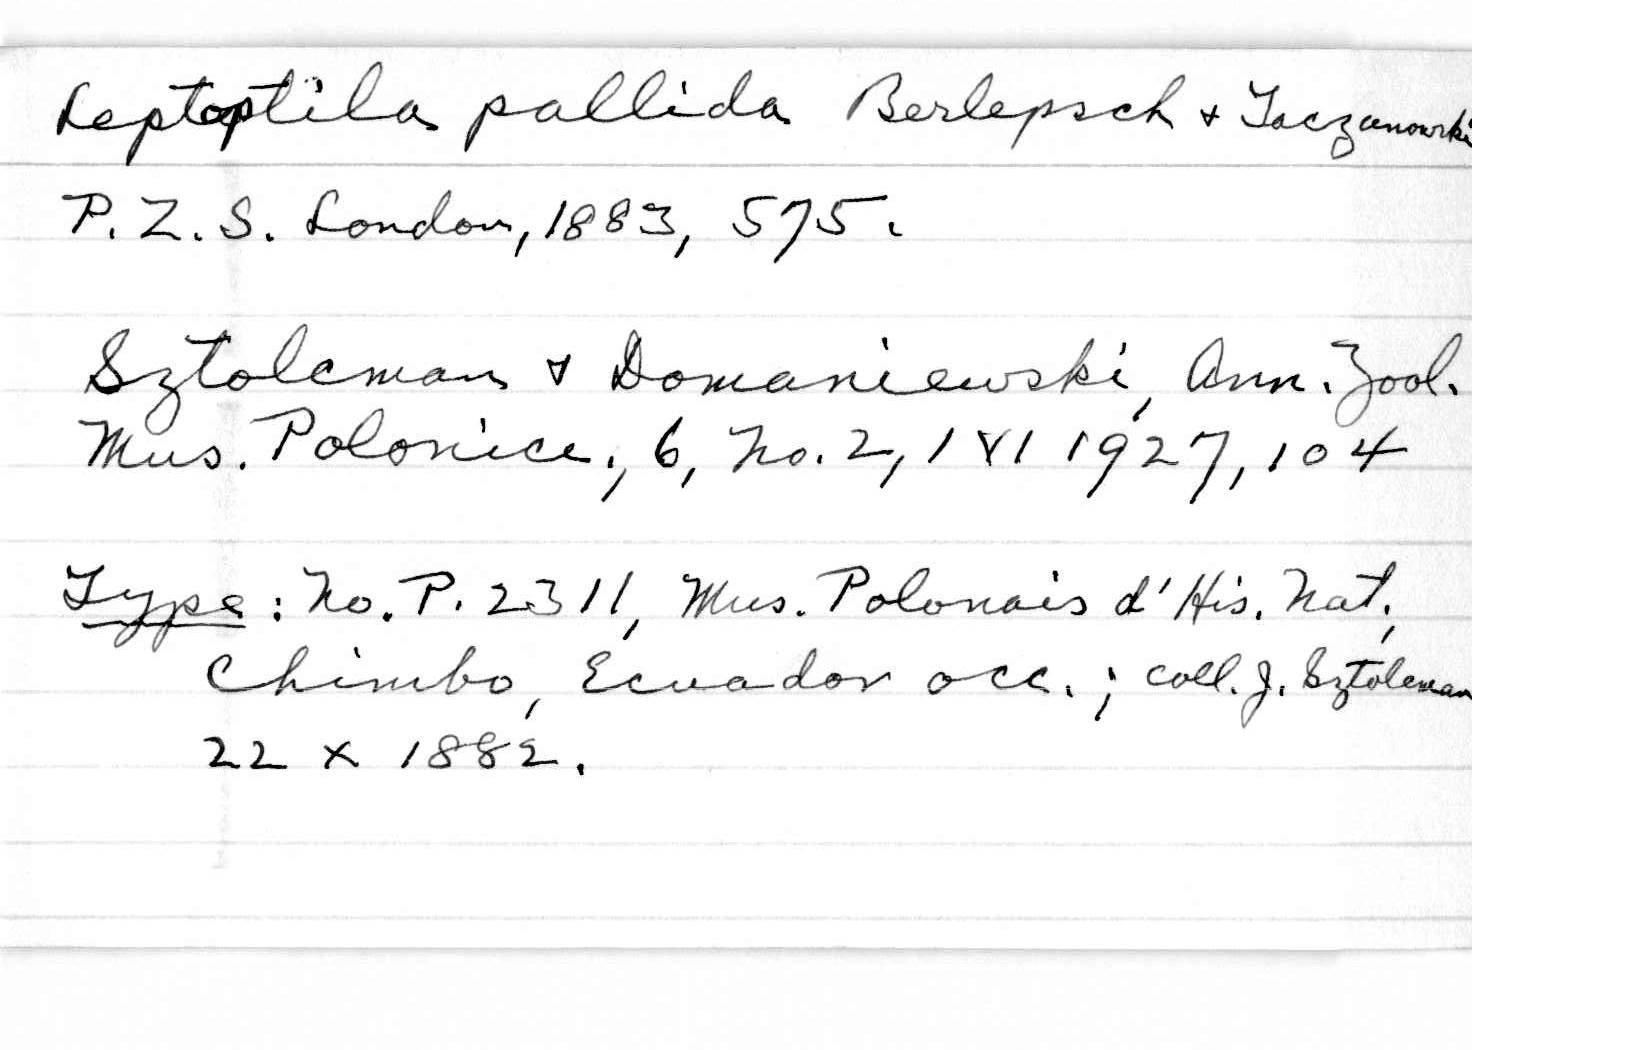 Leptoptila pallida Berlepsch & Taczanowski
P. Z. S. London, 1883, 575.
Sztolcman & Domaniewski, Ann. Zool.
Mus. Polonici., 6, No. 2, 1 VI 1927, 104
Type: No. P. 2311, Mus. Polonais d'His. Nat.,
Chimbo, Ecuador occ.; coll. J. Sztolcman
22 X 1882.